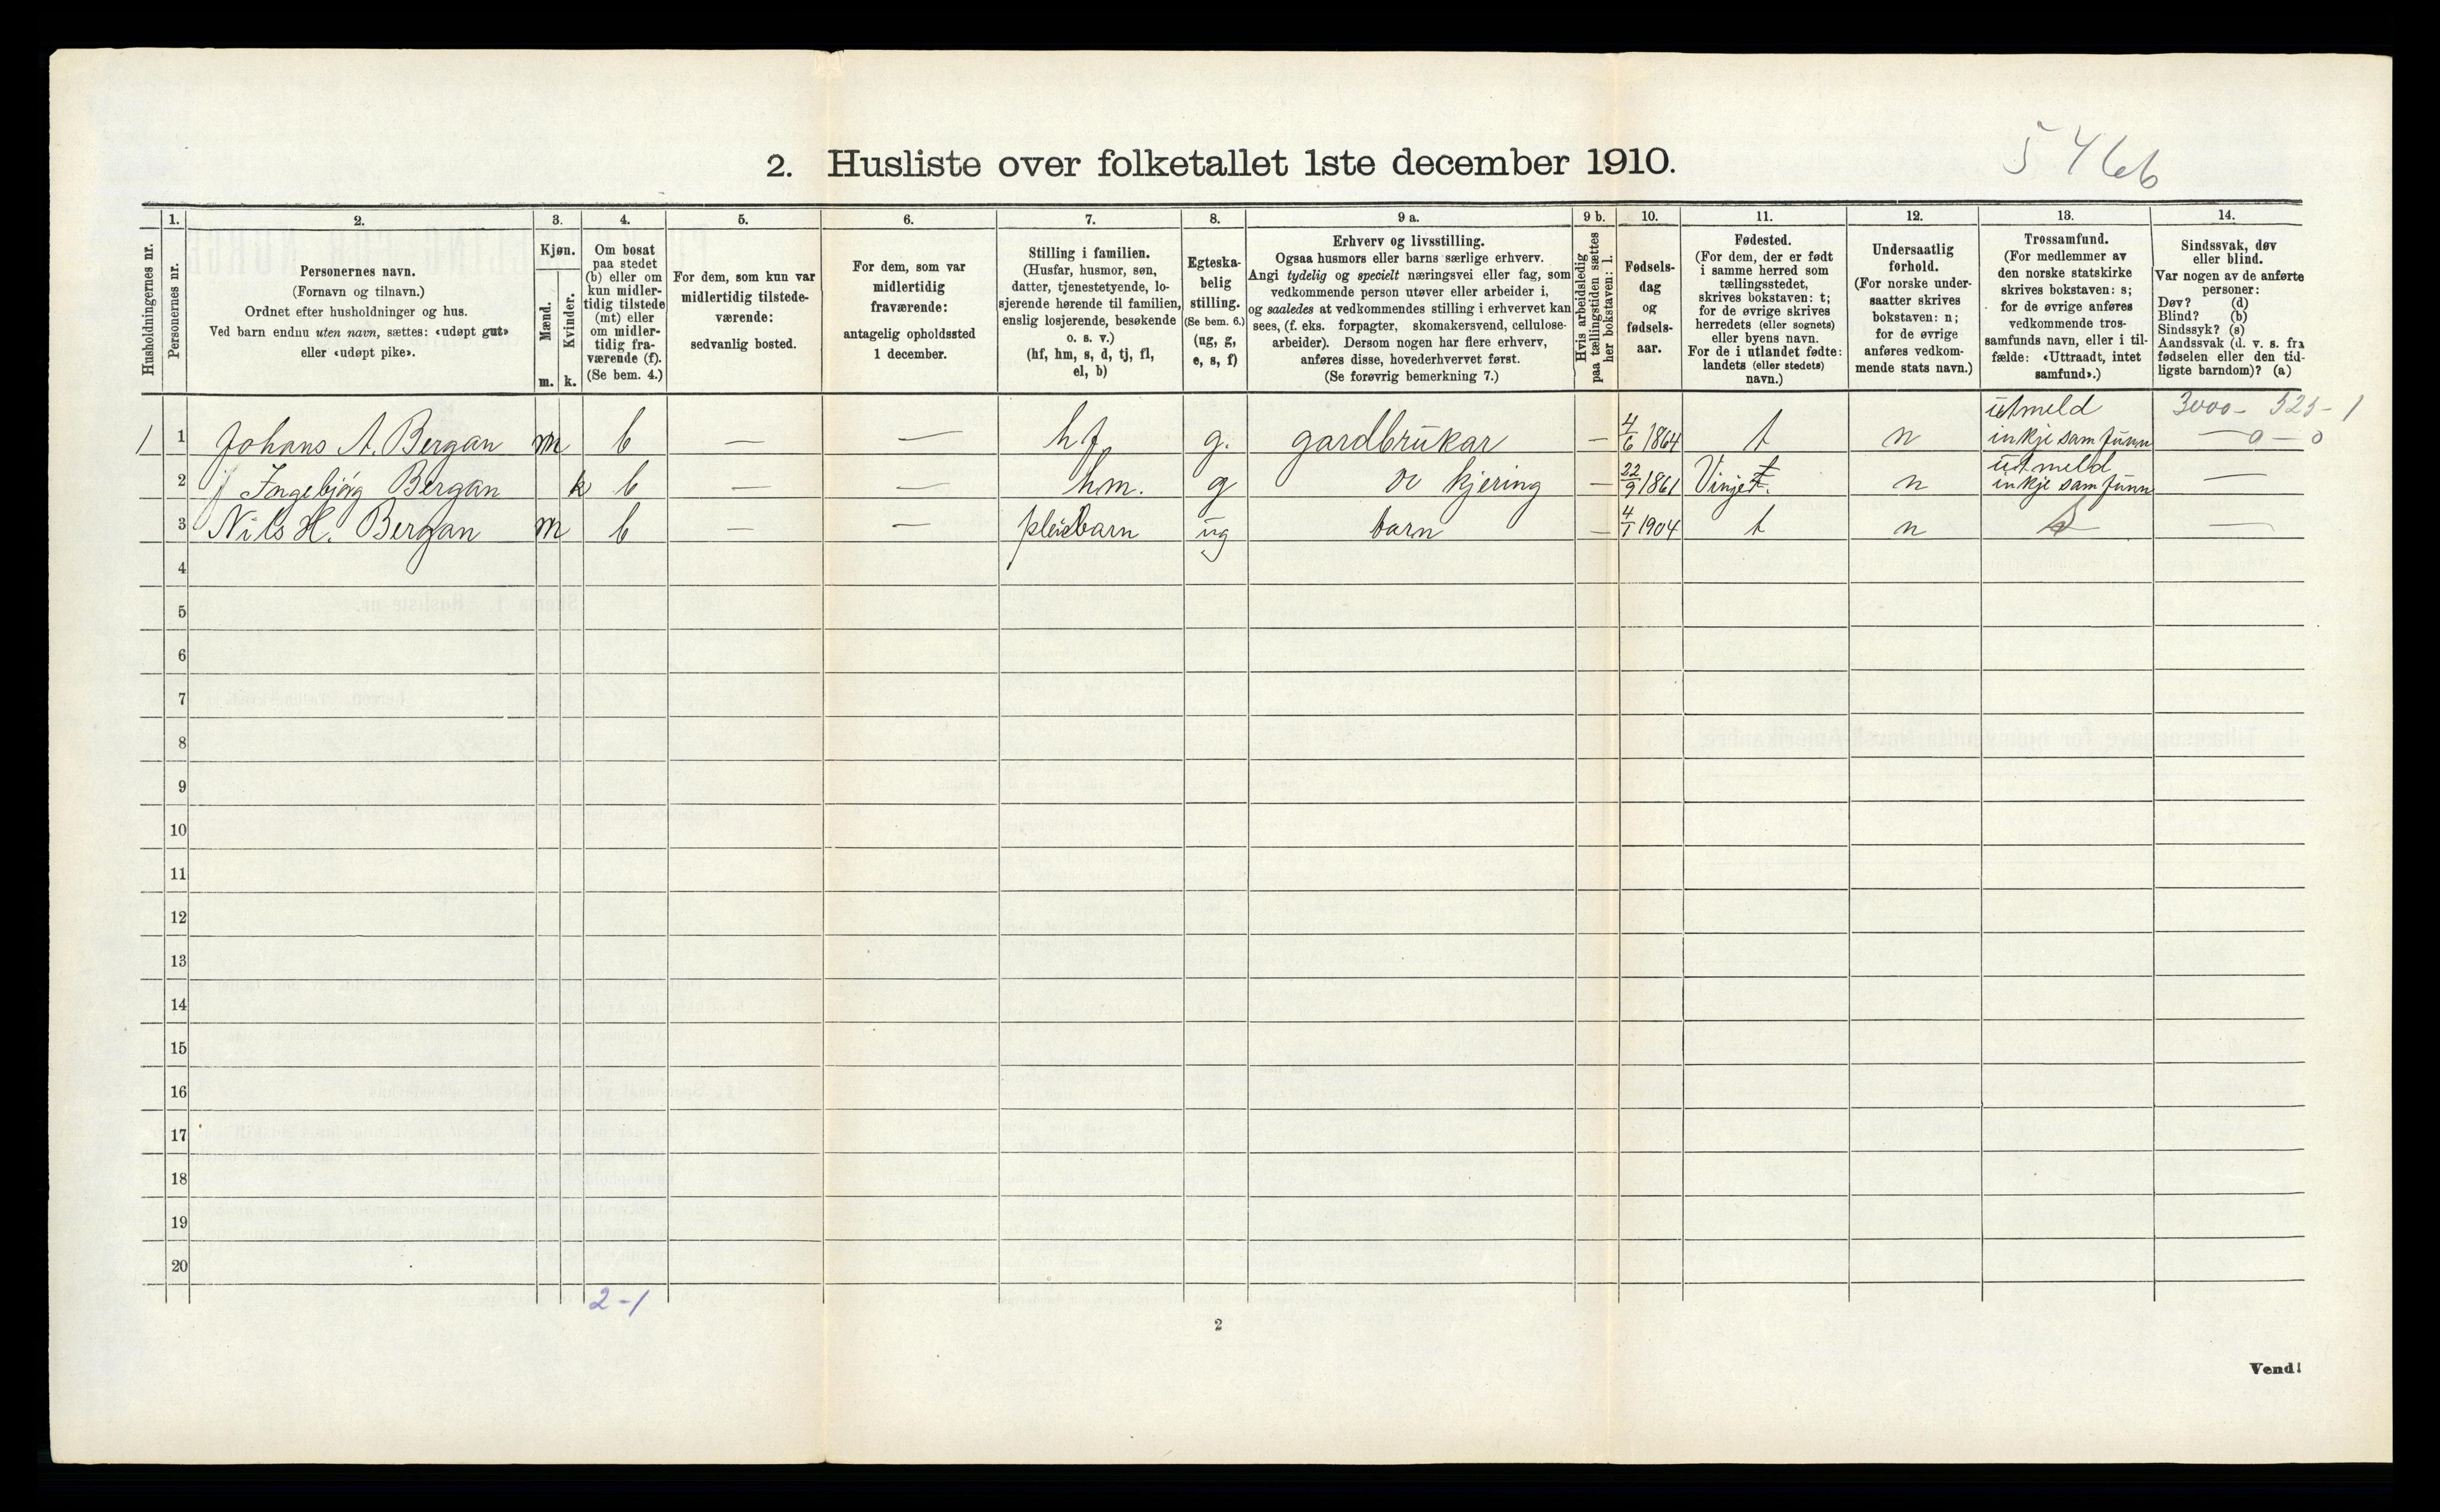 5466
2. Husliste over folketallet 1ste december 1910.
Husholdningernes nr.
1. Personernes nr.
2. Personernes navn.
(Fornavn og tilnavn.)
Ordnet efter husholdninger og hus.
Ved barn endnu uten navn, sættes: «udøpt gut»
eller «udøpt pike».
3. Kjøn.
Mænd. m.
Kvinder. k.
4. Om bosat
paa stedet
(b) eller om
kun midler-
tidig tilstede
(mt) eller
om midler-
tidig fra-
værende (f).
(Se bem. 4.)
5. For dem, som kun var
midlertidig tilstede-
værende:
sedvanlig bosted.
6. For dem, som var
midlertidig
fraværende:
antagelig opholdssted
1 december.
7. Stilling i familien.
(Husfar, husmor, søn,
datter, tjenestetyende, lo-
sjerende hørende til familien,
enslig losjerende, besøkende
o. s. v.)
(hf, hm, s, d, tj, fl,
el, b)
8. Egteska-
belig
stilling.
(Se bem. 6.)
(ug, g,
e, s, f)
9 a. Erhverv og livsstilling.
Ogsaa husmors eller barns særlige erhverv.
Angi tydelig og specielt næringsvei eller fag, som
vedkommende person utøver eller arbeider i,
og saaledes at vedkommendes stilling i erhvervet kan
sees, (f. eks. forpagter, skomakersvend, cellulose-
arbeider). Dersom nogen har flere erhverv,
anføres disse, hovederhvervet først.
(Se forøvrig bemerkning 7.)
9 b. Hvis arbeidsledig
paa tællingstiden sættes
her bokstaven: l.
10. Fødsels-
dag
og
fødsels-
aar.
11. Fødested.
(For dem, der er født
i samme herred som
tællingsstedet,
skrives bokstaven: t;
for de øvrige skrives
herredets (eller sognets)
eller byens navn.
For de i utlandet fødte:
landets (eller stedets)
navn.)
12. Undersaatlig
forhold.
(For norske under-
saatter skrives
bokstaven: n;
for de øvrige
anføres vedkom-
mende stats navn.)
13. Trossamfund.
(For medlemmer av
den norske statskirke
skrives bokstaven: s;
for de øvrige anføres
vedkommende tros-
samfunds navn, eller i til-
fælde: «Uttraadt, intet
samfund».)
14. Sindssvak, døv
eller blind.
Var nogen av de anførte
personer:
Døv? (d)
Blind? (b)
Sindssyk? (s)
Aandssvak (d. v. s. fra
fødselen eller den tid-
ligste barndom)? (a)
1 1 Johans A. Bergan m b — — hf g. gardbrukar — 4/6 1864 t n utmeld inkje samfunn 3000 - 525 - 1 — 0 — 0
2 Ingebjørg Bergan k b — — hm. g kjering — 22/9 1861 Vinje t. n utmeld inkje samfunn —
3 Nils H. Bergan m b — — pleiebarn ug barn — 4/1 1904 t n s —
4
5
6
7
8
9
10
11
12
13
14
15
16
17
18
19
20
2-1
2
Vend!